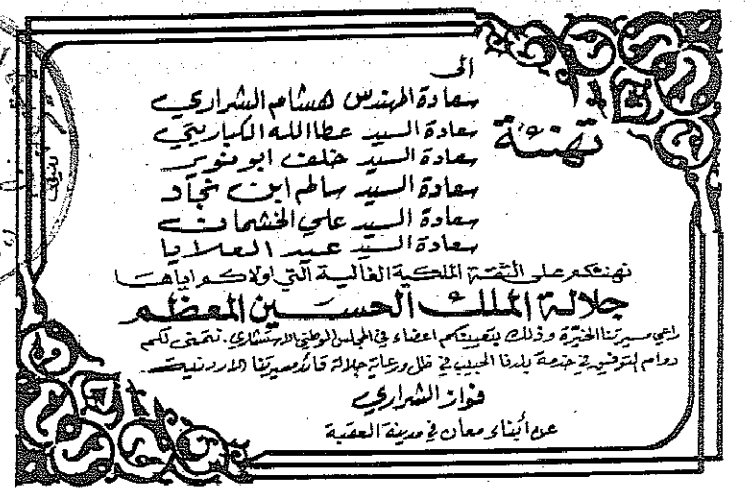 تهنئة
الى
سعادة المهندس هشام الشراري
سعادة السيد عطا الله الكباريتي
سعادة السيد خلف ابو نوير
سعادة السيد سالم ابن نجاد
سعادة السيد علي الخشمان
سعادة السيد عيد العلايا
نهنئكم على الثقة الملكية الغالية التي اولاكم اياها
جلالة الملك الحسين المعظم
راعي مسيرتنا الخيرة وذلك بتعيينكم اعضاء في المجلس الوطني الاستشاري. نتمنى لكم
دوام التوفيق في خدمة بلدنا الحبيب في ظل ورعاية جلالة قائد مسيرتنا الاردنية
فواز الشراري
عن أبناء معان في مدينة العقبة